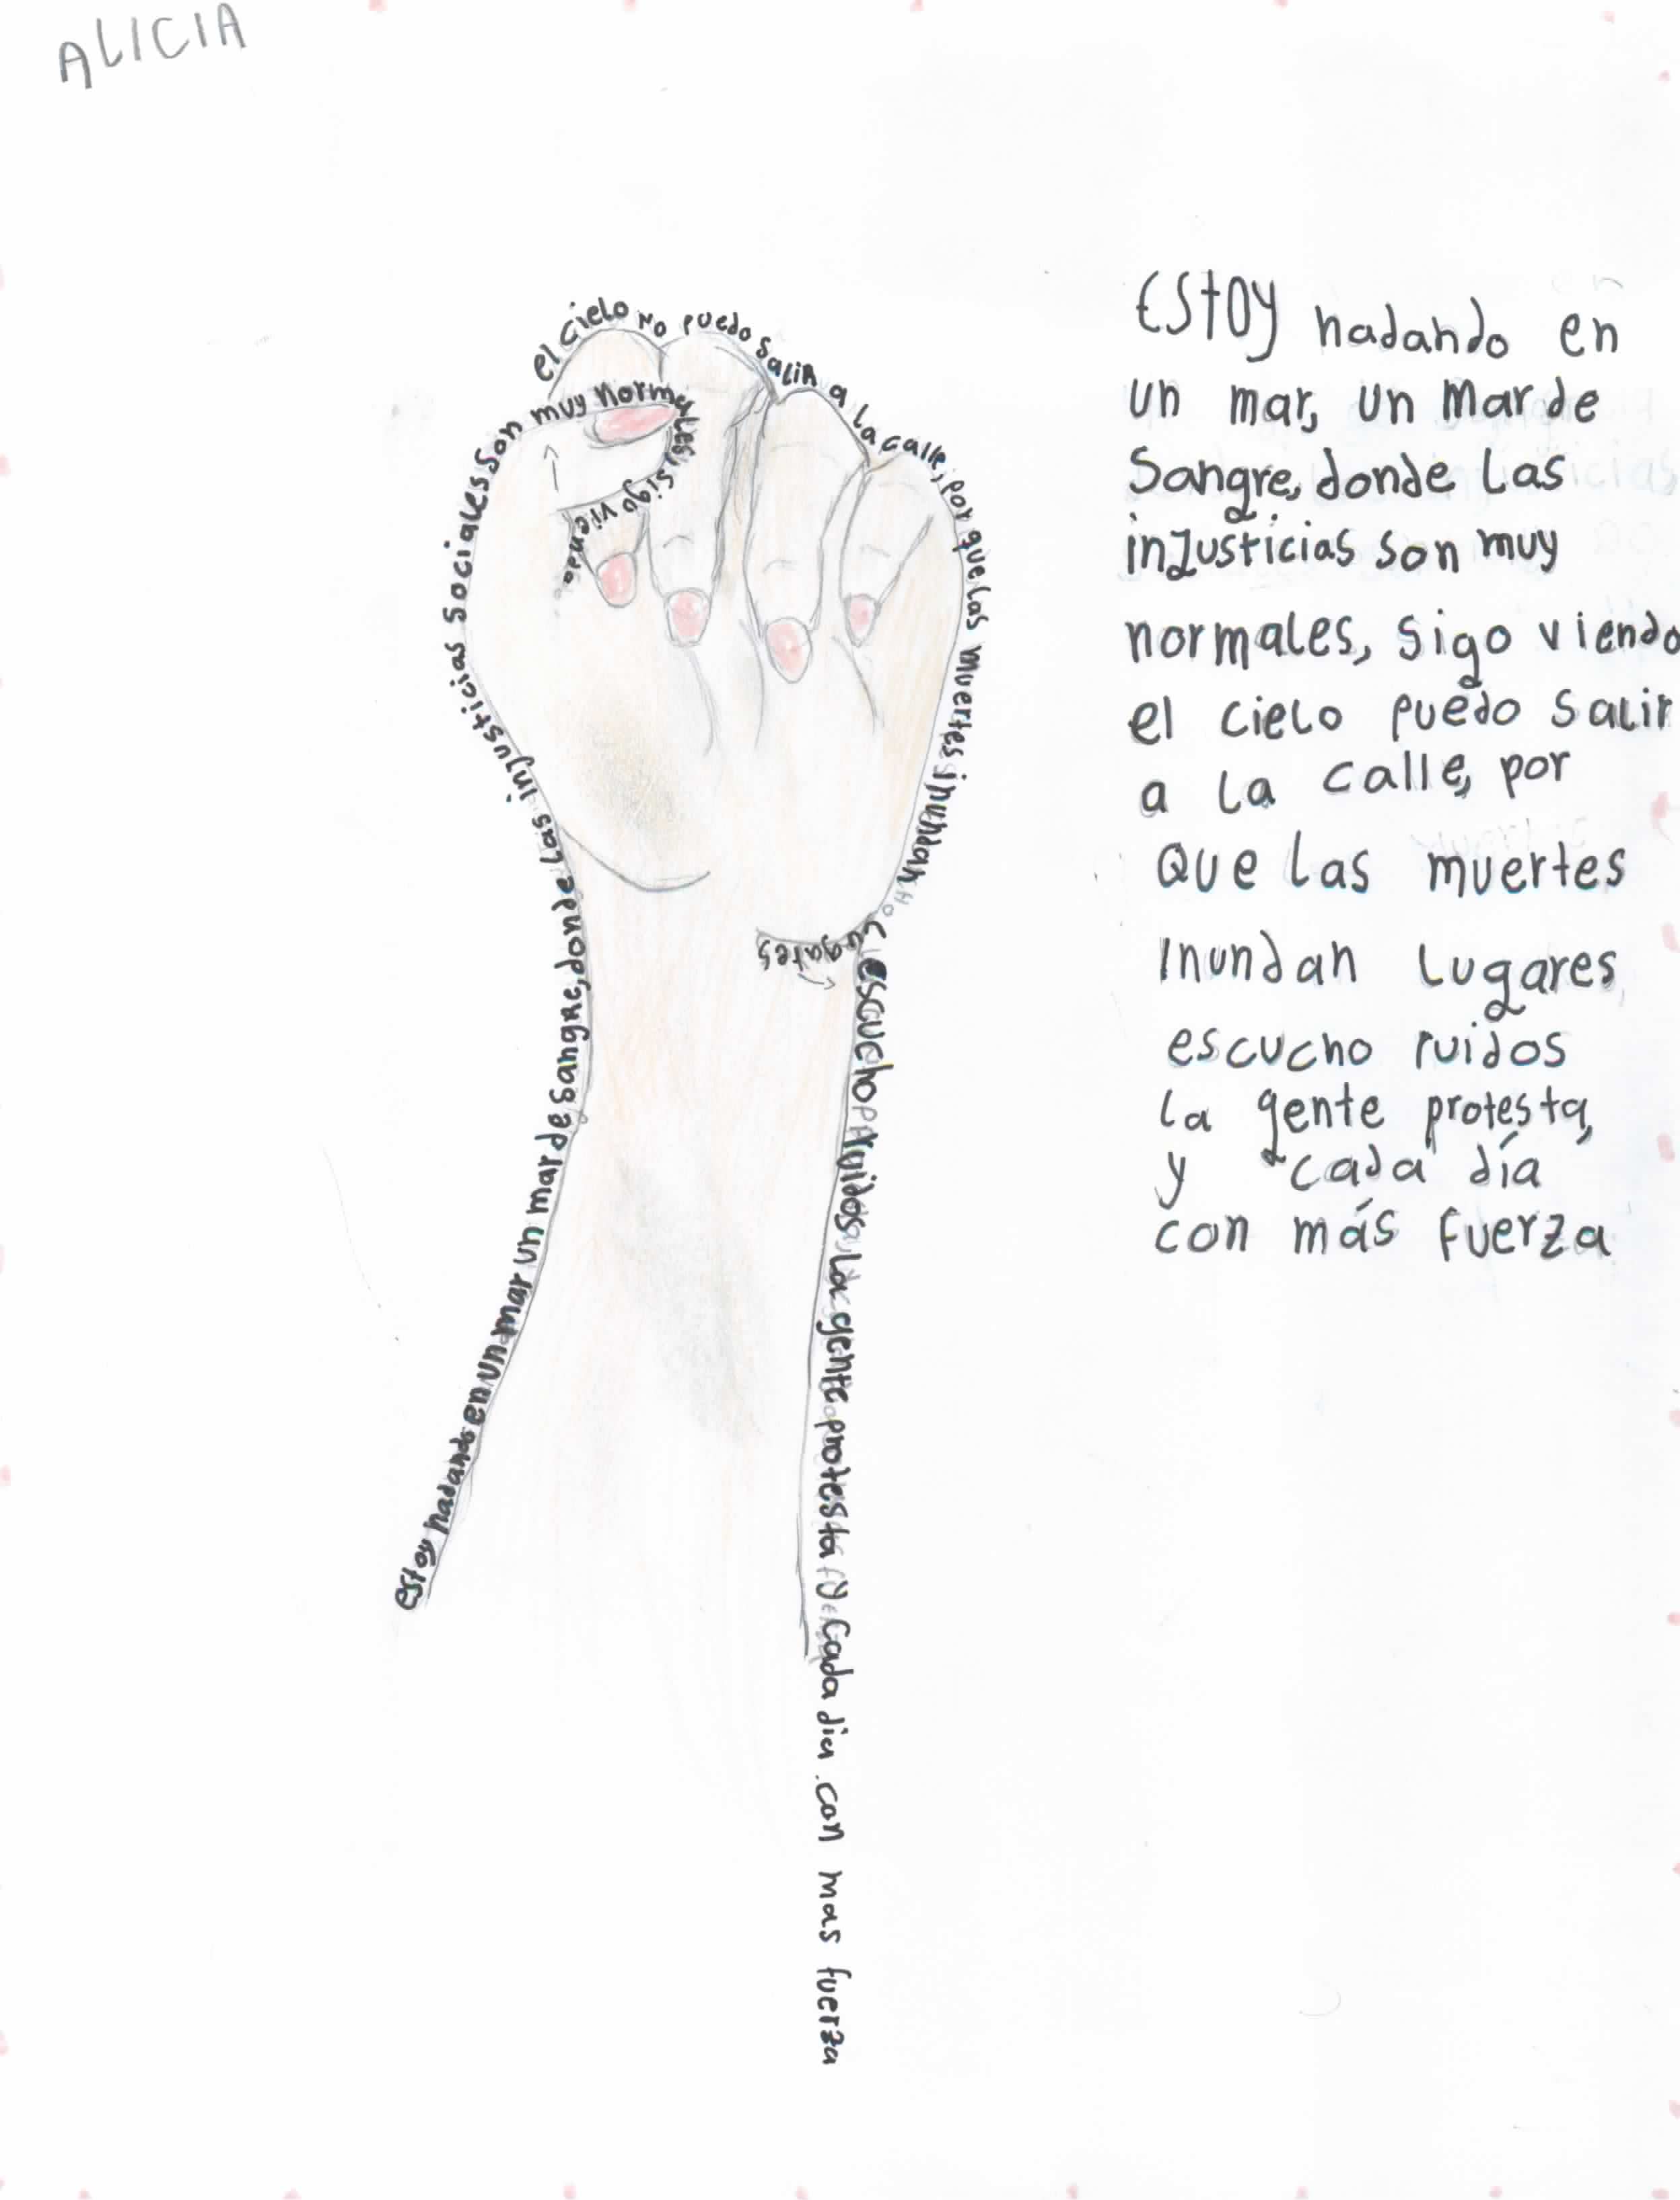 ALICIA
estoy nadando en un mar un mar de sangre, donde las injusticias sociales son muy normales, sigo viendo
el cielo no puedo salir a la calle, por que las muertes inundan
lugares
escucho ruidos, la gente protesta y cada dia con mas fuerza
Estoy nadando en
un mar, un mar de
Sangre, donde las
injusticias son muy
normales, sigo viendo
el cielo puedo salir
a la calle, por
Que las muertes
inundan lugares
escucho ruidos
la gente protesta,
y cada día
con más fuerza